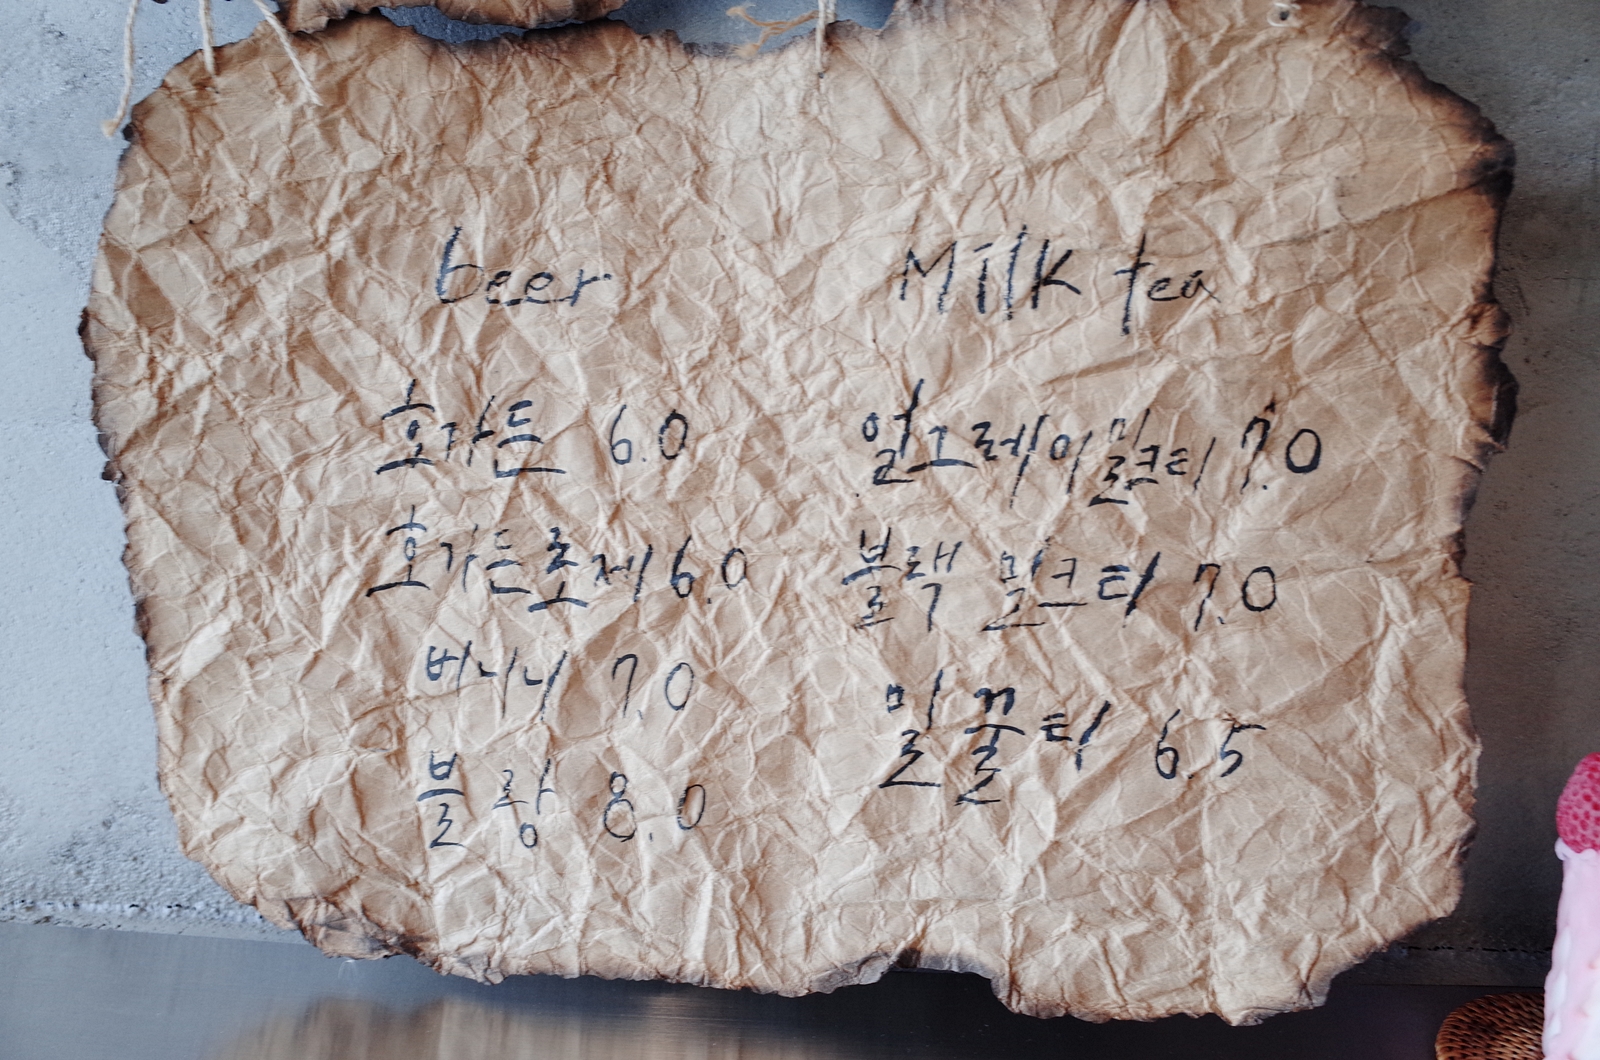 beer
호가든 6.0
호가든로제 6.0
버니니 7.0
블랑 8.0
Milk tea
얼그레이밀크티 7.0
블랙 밀크티 7.0
밀꿀티 6.5